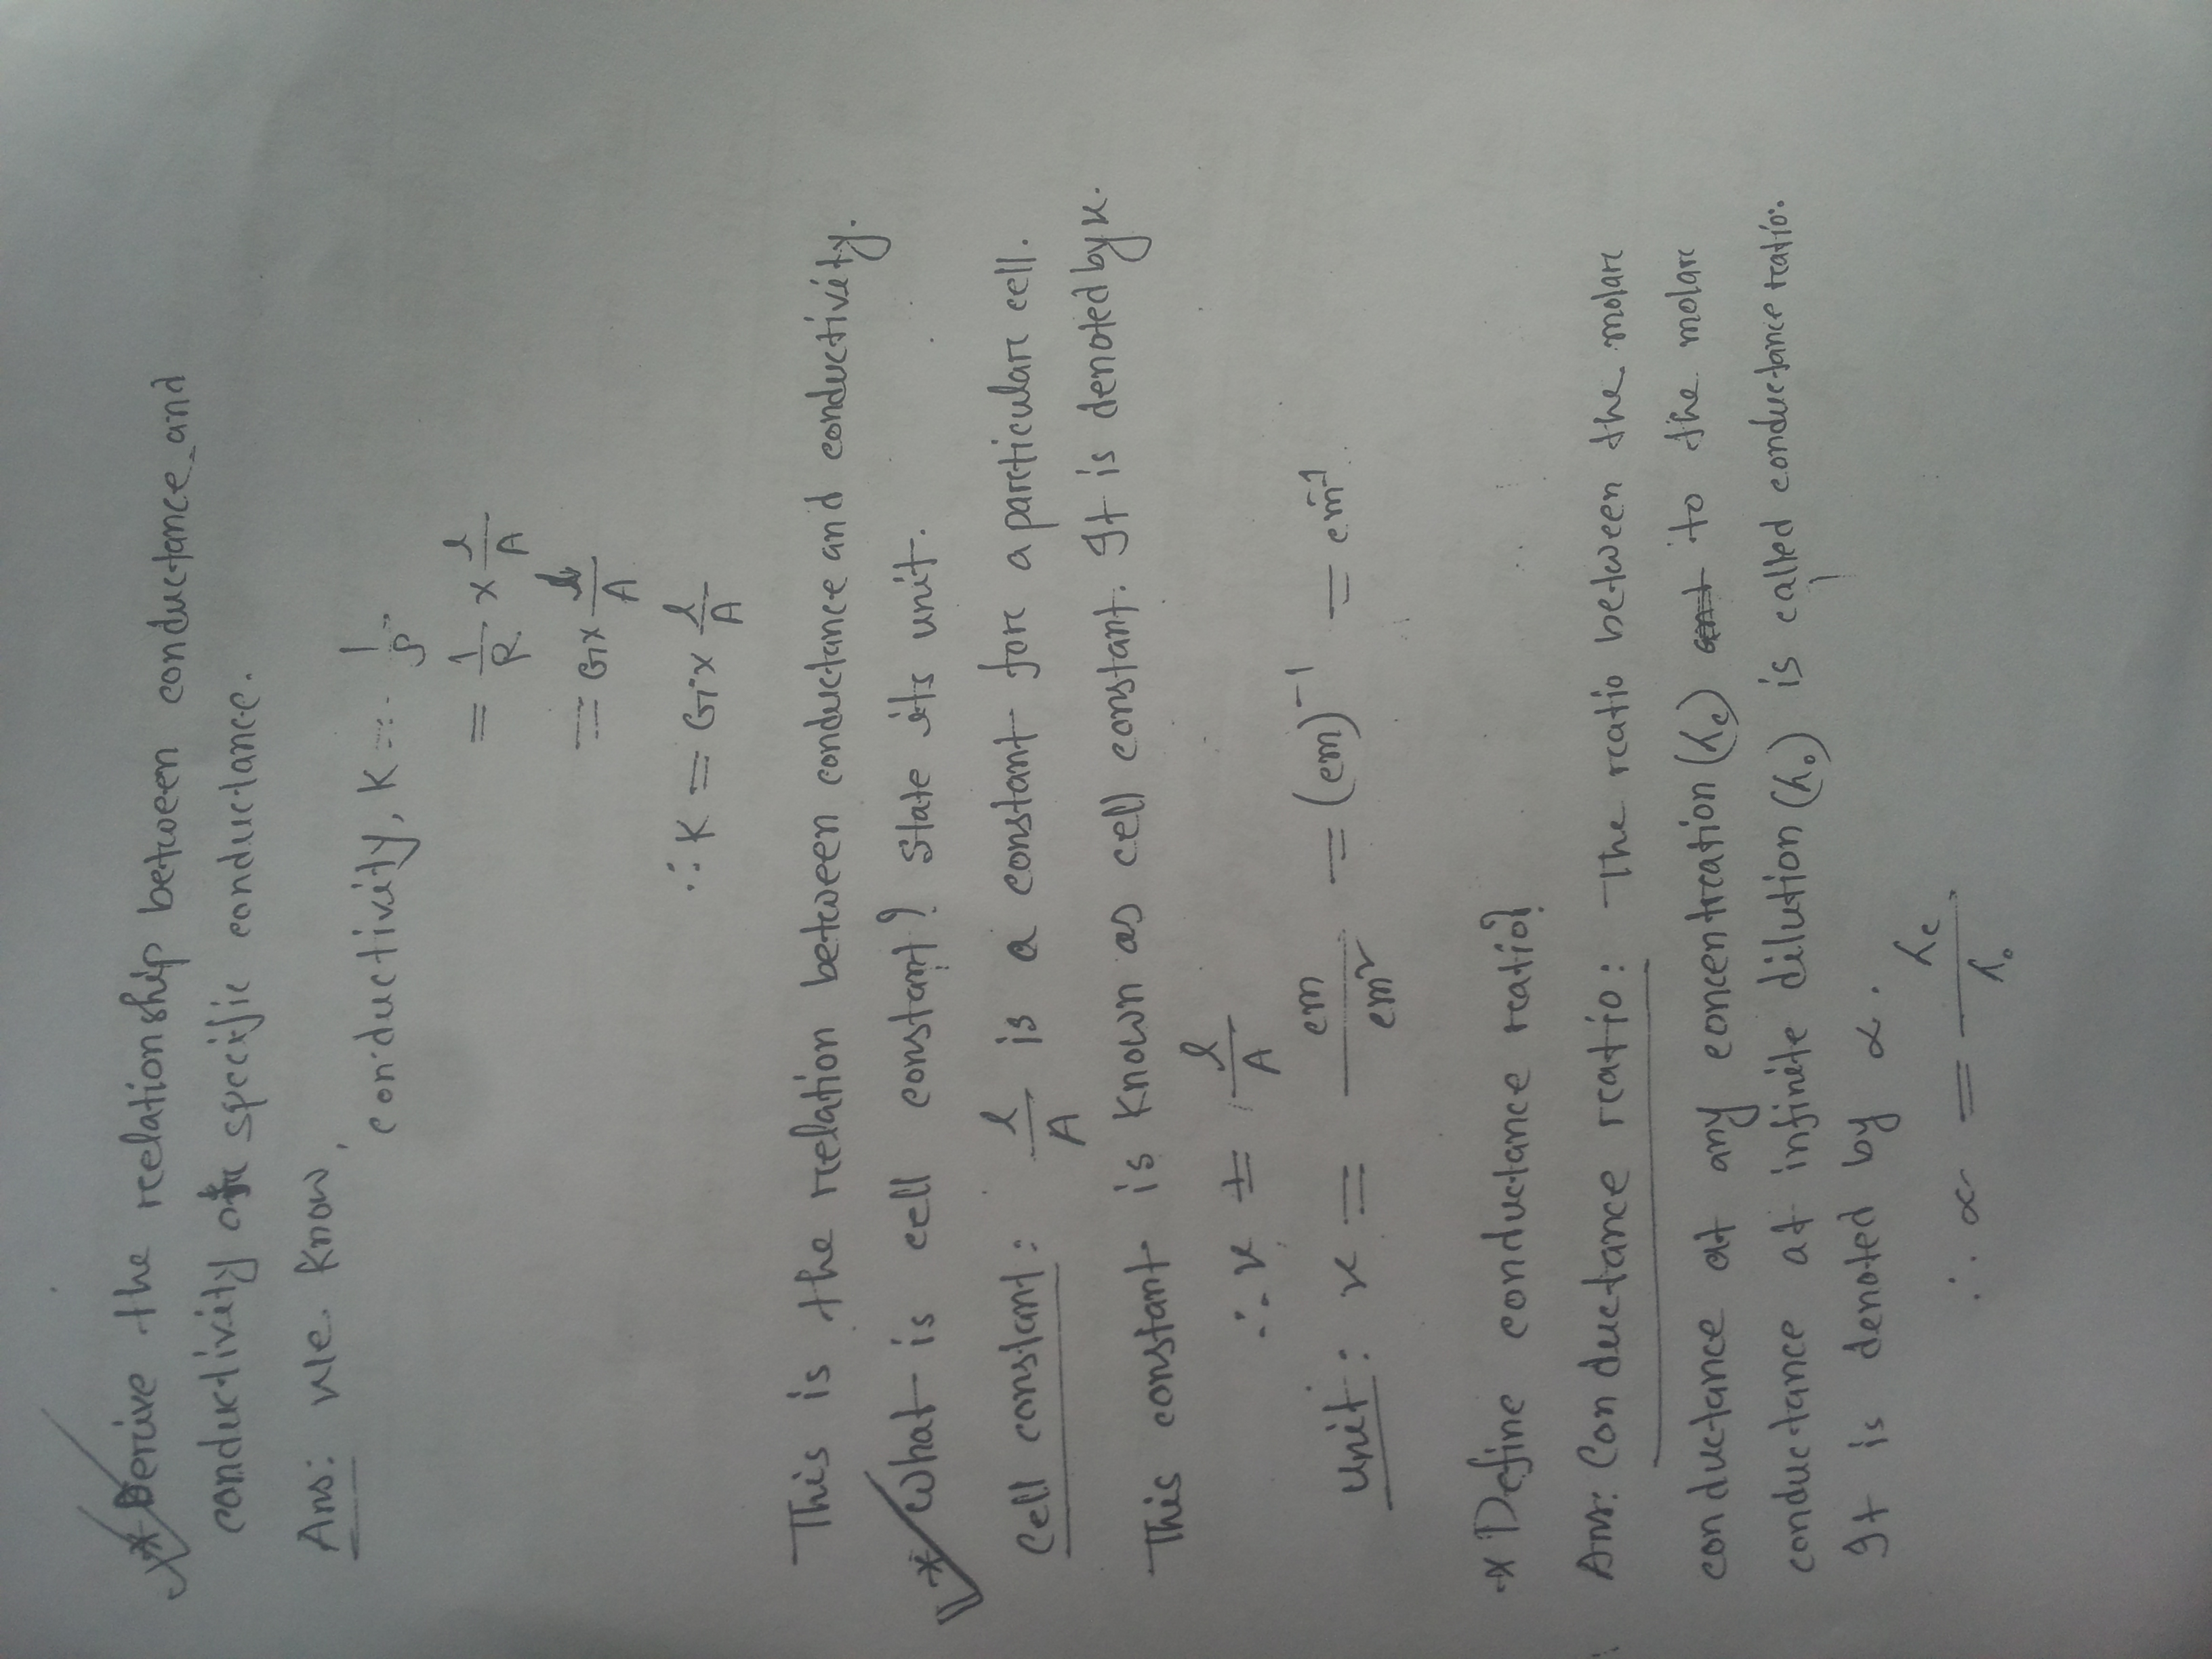 * Derive the relationship between conductance and
conductivity or specific conductance.
Ans: we know,
conductivity, K = 1/ρ
= 1/R × l/A
= G × l/A
∴ K = G × l/A
This is the relation between conductance and conductivity.
* What is cell constant? State its unit.
Cell constant: l/A is a constant for a particular cell.
This constant is known as cell constant. It is denoted by x.
∴ x = l/A
Unit: x = cm/cm² = (cm)⁻¹ = cm⁻¹
* Define conductance ratio?
Ans: Conductance ratio: The ratio between the molar
conductance at any concentration (λc) to the molar
conductance at infinite dilution (λ₀) is called conductance ratio.
It is denoted by α.
∴ α = λc/λ₀